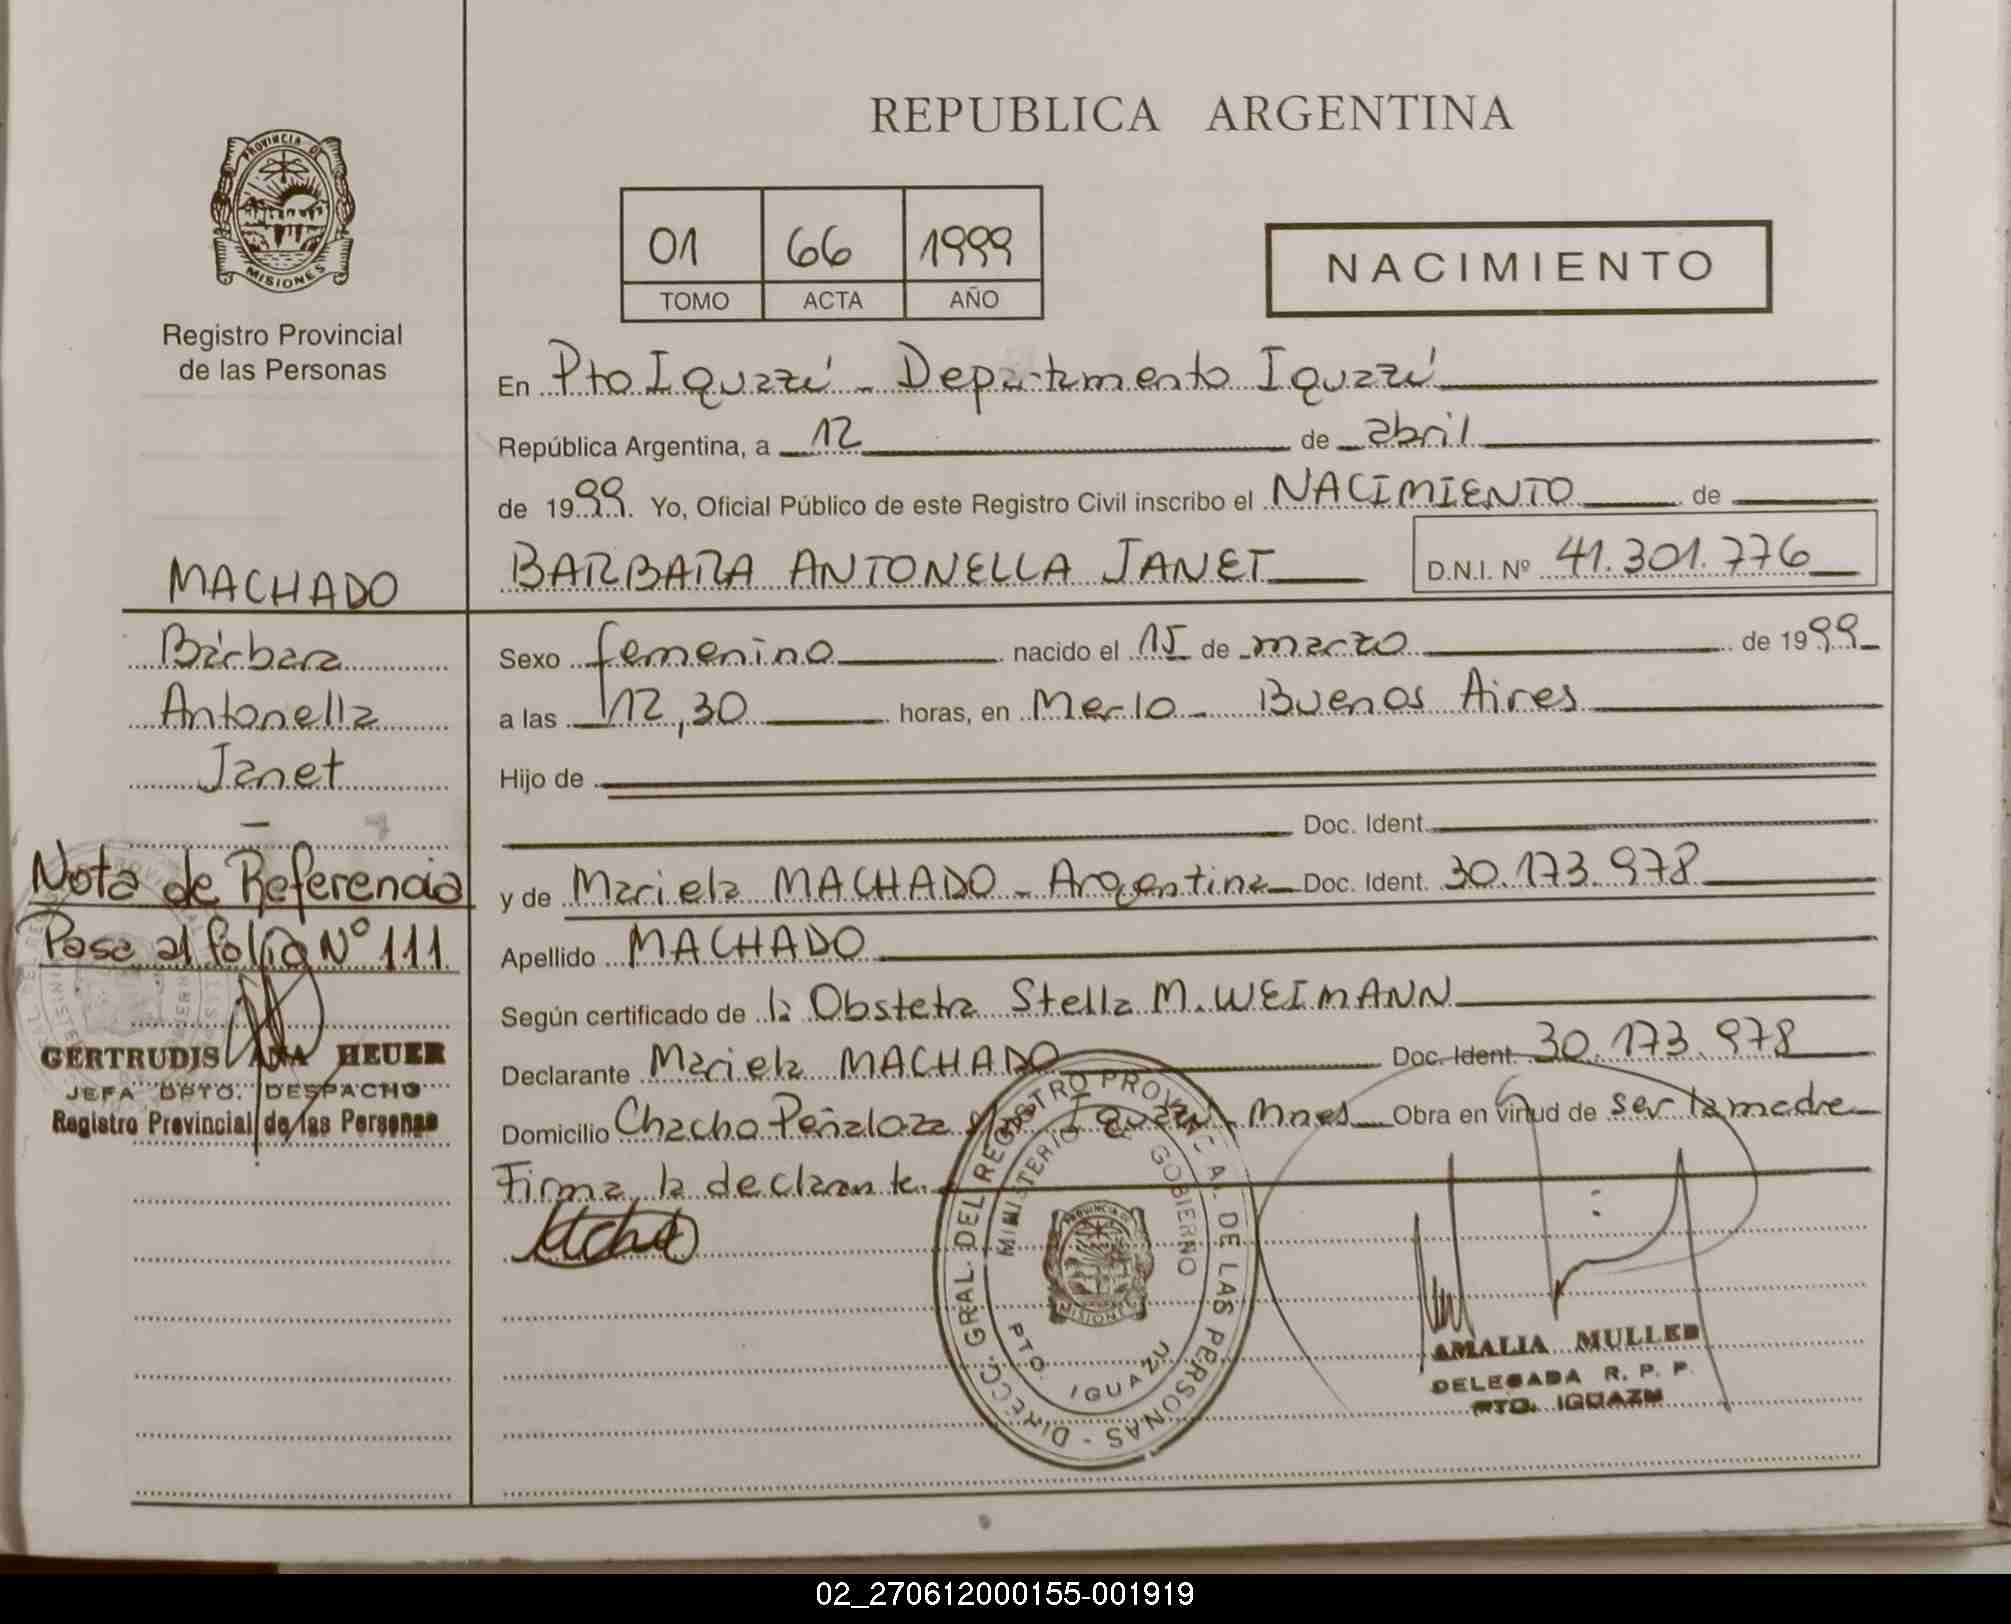 REPUBLICA ARGENTINA
PROVINCIA DE
MISIONES
Registro Provincial
de las Personas
01 66 1999
TOMO ACTA AÑO
NACIMIENTO
En Pto Iguazú - Departamento Iguazú
República Argentina, a 12 de abril
de 1999. Yo, Oficial Público de este Registro Civil inscribo el NACIMIENTO de
BARBARA ANTONELLA JANET D.N.I. Nº 41.301.776
MACHADO
Bárbara
Antonella
Janet
Nota de Referencia
Pase al folio Nº 111
GERTRUDIS ANA HEUER
JEFA DPTO. DESPACHO
Registro Provincial de las Personas
Sexo femenino nacido el 15 de marzo de 1999
a las 12,30 horas, en Merlo - Buenos Aires
Hijo de
Doc. Ident.
y de Mariela MACHADO - Argentina Doc. Ident. 30.173.978
Apellido MACHADO
Según certificado de la Obstetra Stella M. WEIMANN
Declarante Mariela MACHADO Doc. Ident. 30.173.978
Domicilio Chacho Peñaloza Iguazú - Mnes Obra en virtud de ser la madre
Firma, la declarante.
DIRECC. GRAL. DEL REGISTRO PROVINCIAL DE LAS PERSONAS -
MINISTERIO DE GOBIERNO
PROVINCIA DE
MISIONES
PTO. IGUAZU
AMALIA MULLER
DELEGADA R. P. P.
PTO. IGUAZU
02_270612000155-001919